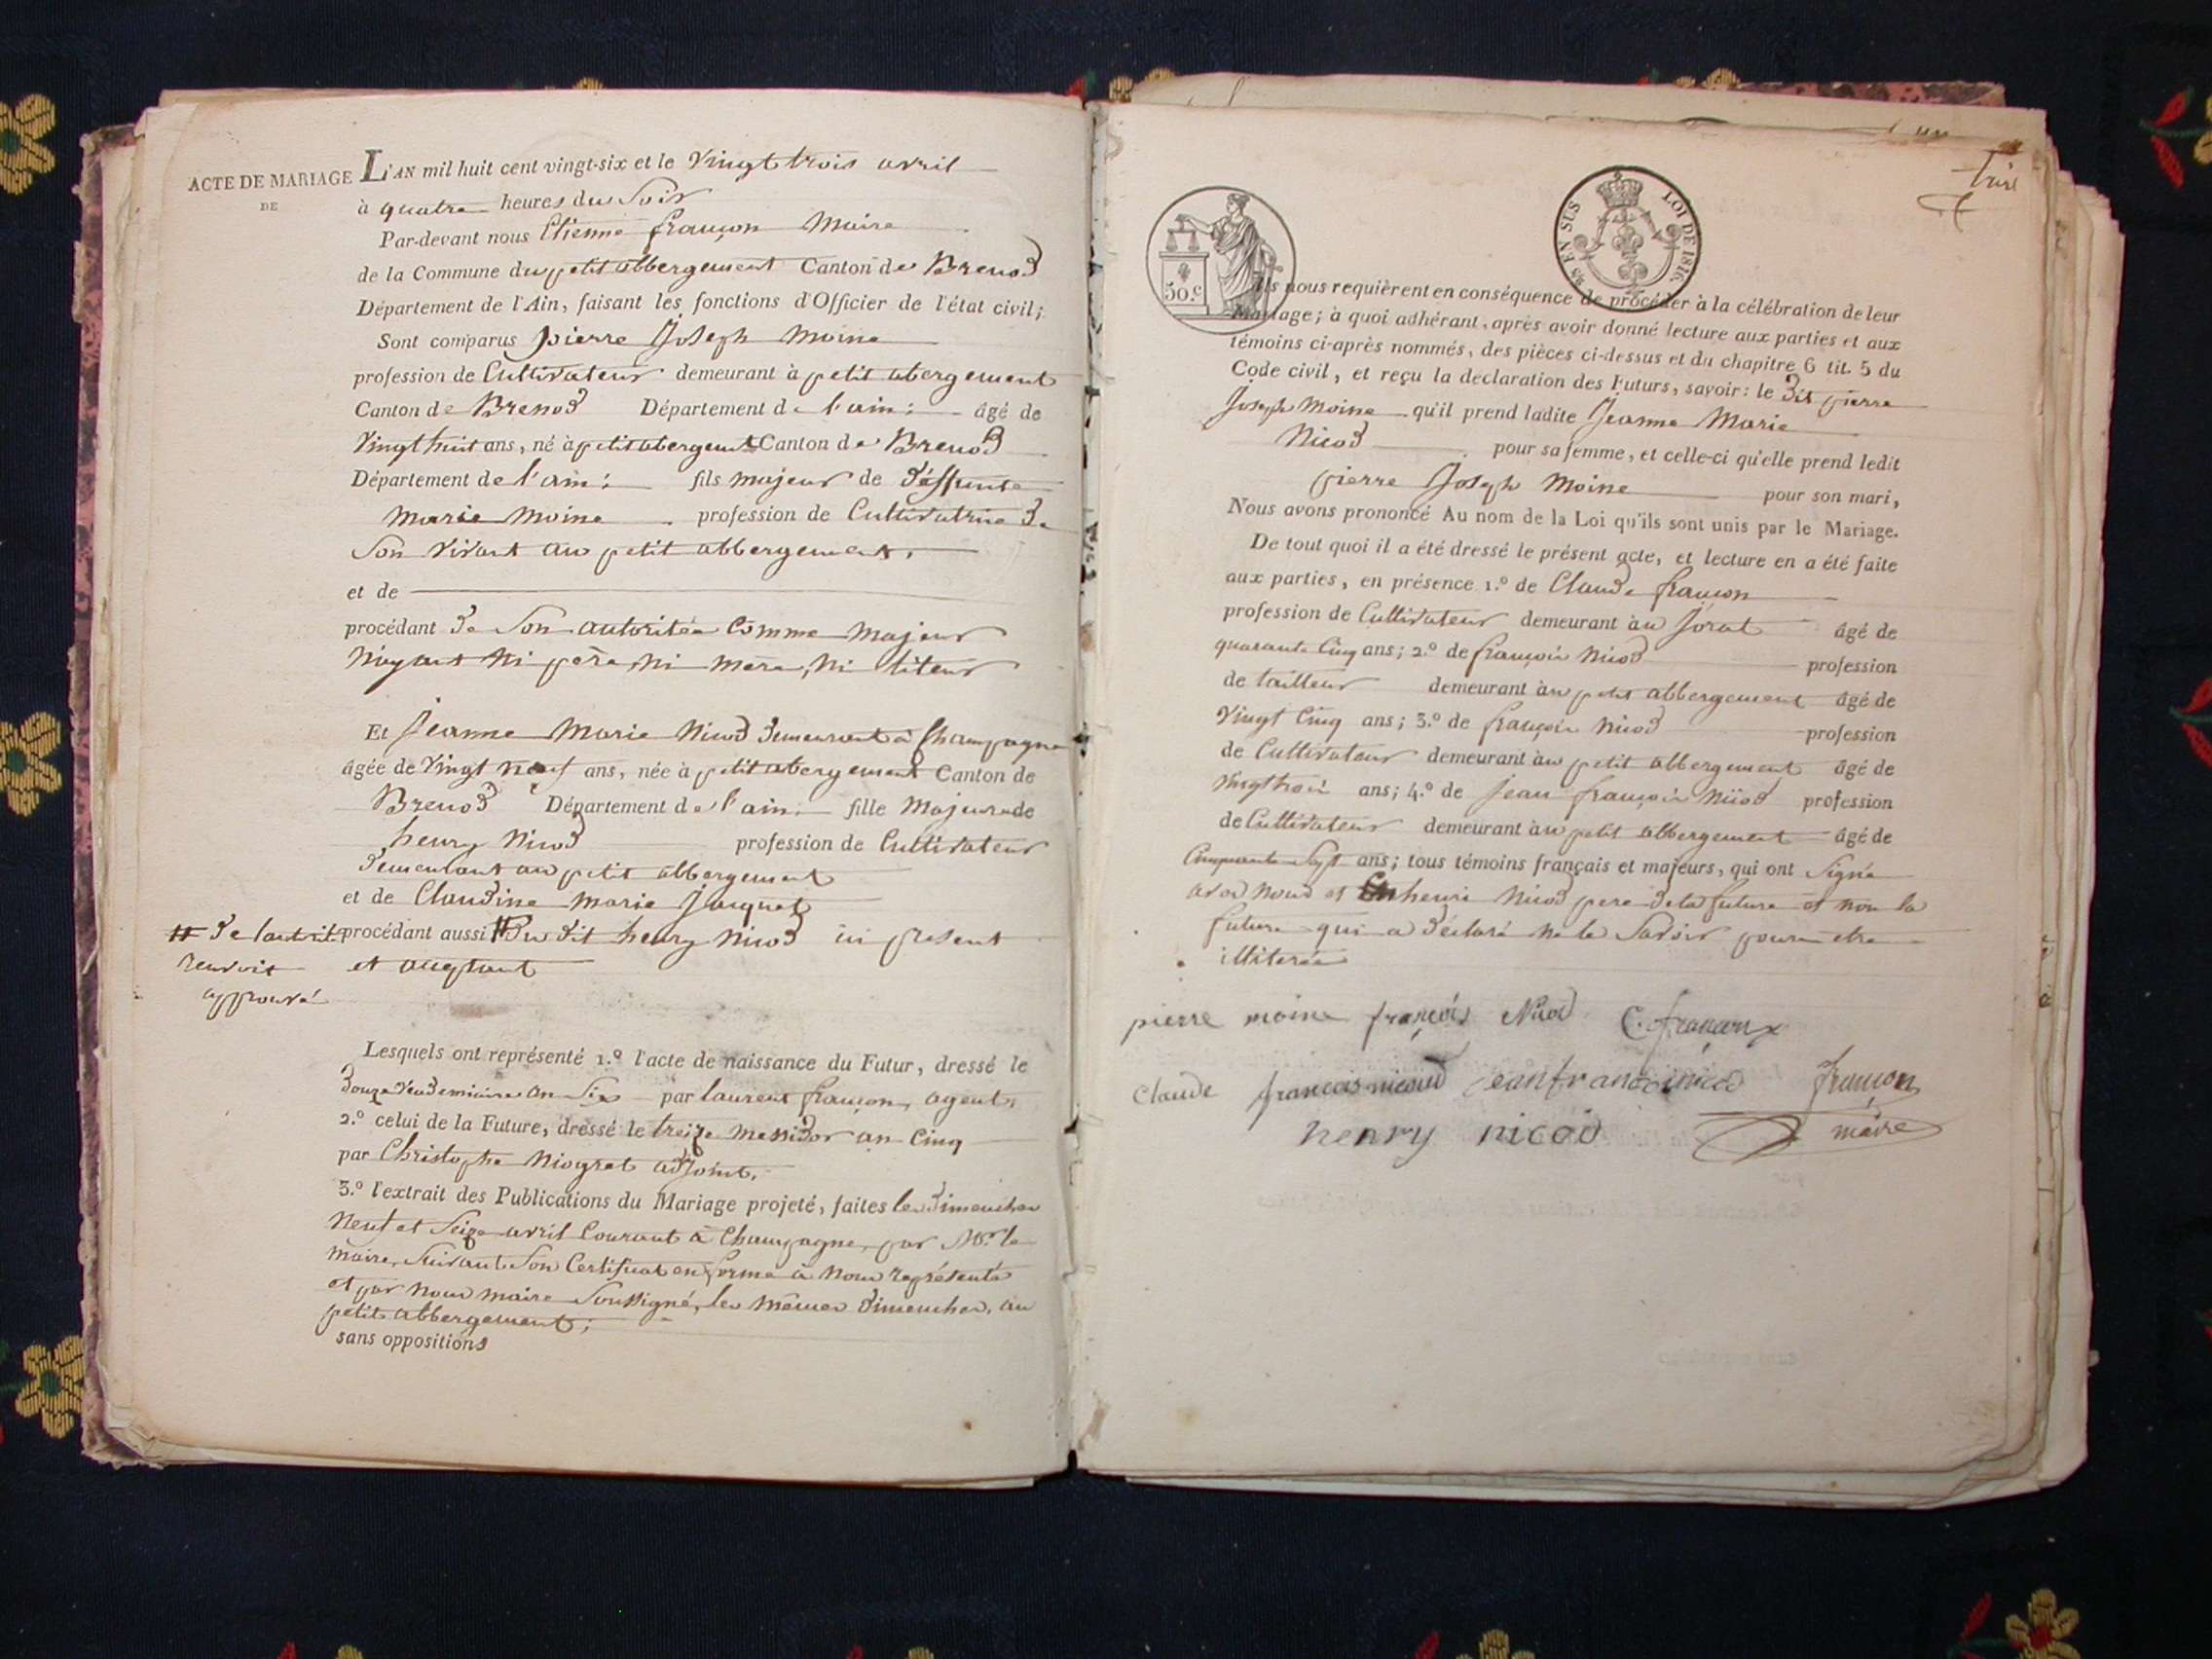 ACTE DE MARIAGE
DE
L'AN mil huit cent vingt-six et le vingt trois avril
à quatre heures du Soir
Par-devant nous Etienne françon Maire
de la Commune du petit abbergement Canton de Brenod
Département de l'Ain, faisant les fonctions d'Officier de l'état civil;
Sont comparus pierre Joseph Moine
profession de Cultivateur demeurant à petit abergement
Canton de Brenod Département de l'ain: âgé de
vingt huit ans, né à petit abergemt Canton de Brenod
Département de l'ain: fils majeur de déffunte
marie moine profession de Cultivatrice de
Son vivant au petit abbergement.
et de
procédant de Son autoritée Comme majeur
N'ayant Ni père, Ni mère, Ni titeur
Et Jeanne Marie Nicod demeurant à Champagne
âgée de vingt neuf ans, née à petit abergement Canton de
Brenod Département de l'ain: fille Majeure de
henry Nicod profession de Cultivateur
demeurant au petit abbergement
et de Claudine marie Jacquet
procédant aussi # Du dit henry Nicod ici present
et acceptant
# De l'autorité
renvoit
approuvé
Lesquels ont représenté 1.º l'acte de naissance du Futur, dressé le
douze vendemiaire an Six par laurent françon, agent,
2.º celui de la Future, dressé le treize messidor an Cinq
par Christophe Niogret adjoint,
3.º l'extrait des Publications du Mariage projeté, faites les dimenches
Neuf et Seize avril Courant à Champagne, par Mr. le
maire, Suivant Son Certificat en forme à Nous représenté
et par nous maire Soussigné, les mêmes dimenches, au
petit abbergement;
sans oppositions
50.c
EN SUS LOI DE 1816.
Ils nous requièrent en conséquence de procéder à la célébration de leur
Mariage; à quoi adhérant, après avoir donné lecture aux parties et aux
témoins ci-après nommés, des pièces ci-dessus et du chapitre 6 tit. 5 du
Code civil, et reçu la declaration des Futurs, savoir: le dit pierre
Joseph Moine qu'il prend ladite Jeanne Marie
Nicod pour sa femme, et celle-ci qu'elle prend ledit
pierre Joseph Moine pour son mari,
Nous avons prononcé Au nom de la Loi qu'ils sont unis par le Mariage.
De tout quoi il a été dressé le présent acte, et lecture en a été faite
aux parties, en présence 1.º de Claude françon
profession de Cultivateur demeurant au Jorat âgé de
quarante Cinq ans; 2.º de françois Nicod profession
de tailleur demeurant au petit abbergement âgé de
vingt Cinq ans; 3.º de françois Nicod profession
de Cultivateur demeurant au petit abbergement âgé de
vingt trois ans; 4.º de Jean françois Nicod profession
de Cultivateur demeurant au petit abbergement âgé de
Cinquante Sept ans; tous témoins français et majeurs, qui ont Signé
avec Nous et henri Nicod pere de la future et non la
future qui a déclaré ne le Savoir pour etre
illiterée
pierre moine françois Nicod C. françon
Claude francois nicoud jean francoi nicod françon
henry nicod maire